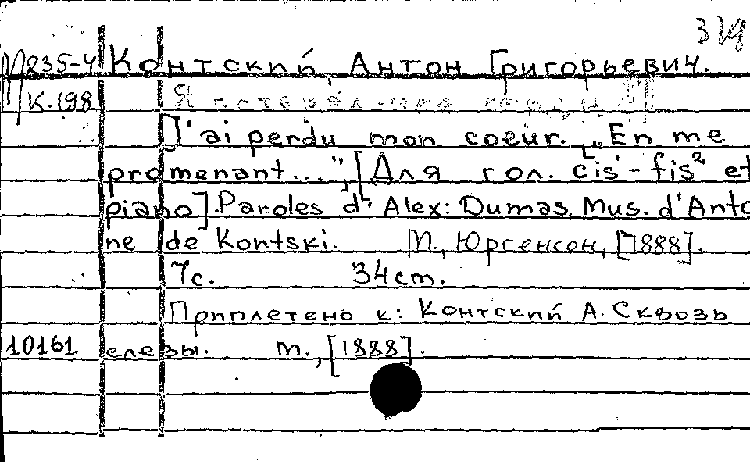 319
М235-4 Контский, Антон Григорьевич.
К.198 Я
J'ai perdu mon coeur. ["En me
promenant...", [Для гол. cis¹-fis² et
piano]. Paroles d' Alex: Dumas. Mus. d'Anto
ne de Kontski. М., Юргенсон, [1888].
7с. 34cm.
Приплетено к: Контский А. Сквозь
10161 слезы. М., [1888].